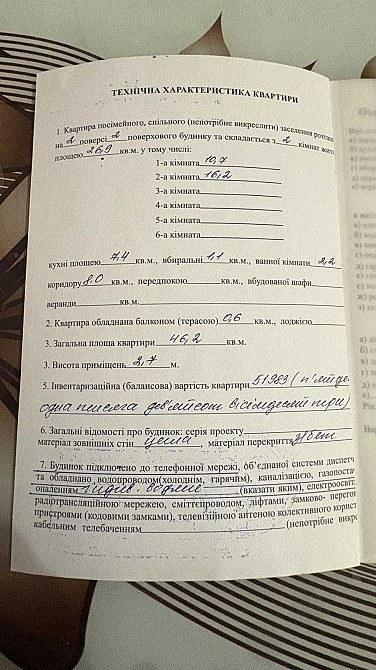 ТЕХНІЧНА ХАРАКТЕРИСТИКА КВАРТИРИ
1. Квартира посімейного, спільного (непотрібне викреслити) заселення розташ
на 2 поверсі 2 поверхового будинку та складається з 2 кімнат жит
площею 26,9 кв.м. у тому числі:
1-а кімната 10,7
2-а кімната 16,2
3-а кімната
4-а кімната
5-а кімната
6-а кімната
кухні площею 7,4 кв.м., вбиральні 1,1 кв.м., ванної кімнати 2,2
коридору 8.0 кв.м., передпокою кв.м., вбудованої шафи
веранди кв.м.
2. Квартира обладнана балконом (терасою) 0,6 кв.м., лоджією
3. Загальна площа квартири 46,2 кв.м.
3. Висота приміщень 2,7 м.
5. Інвентаризаційна (балансова) вартість квартири 51983 (п'ятде
одна тисяча дев'ятсот вісімдесят три)
6. Загальні відомості про будинок: серія проекту
матеріал зовнішніх стін цегла, матеріал перекриття з/бет
7. Будинок підключено до телефонної мережі, об'єднаної системи диспетч
та обладнано водопроводом(холоднім, гарячім), каналізацією, газопоста
опаленням індив. водяне (вказати яким), електроосвіт
радіотрансляційною мережею, сміттєпроводом, ліфтами, замково- перегон
пристроями (кодовими замками), телевізійною антеною колективного корист
кабельним телебаченням (непотрібне викр